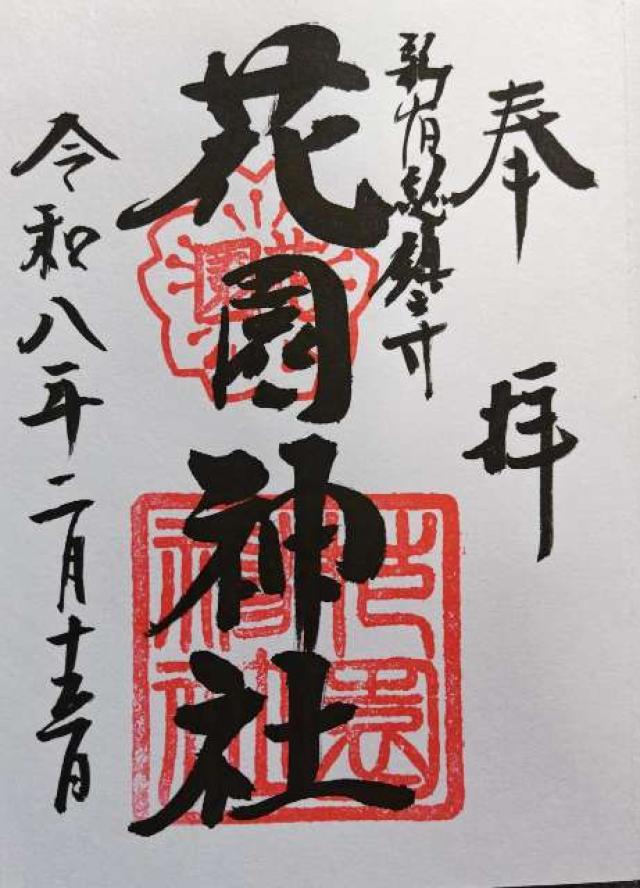 奉拝
新宿総鎮守
花園神社
令和八年二月十五日
花園神社